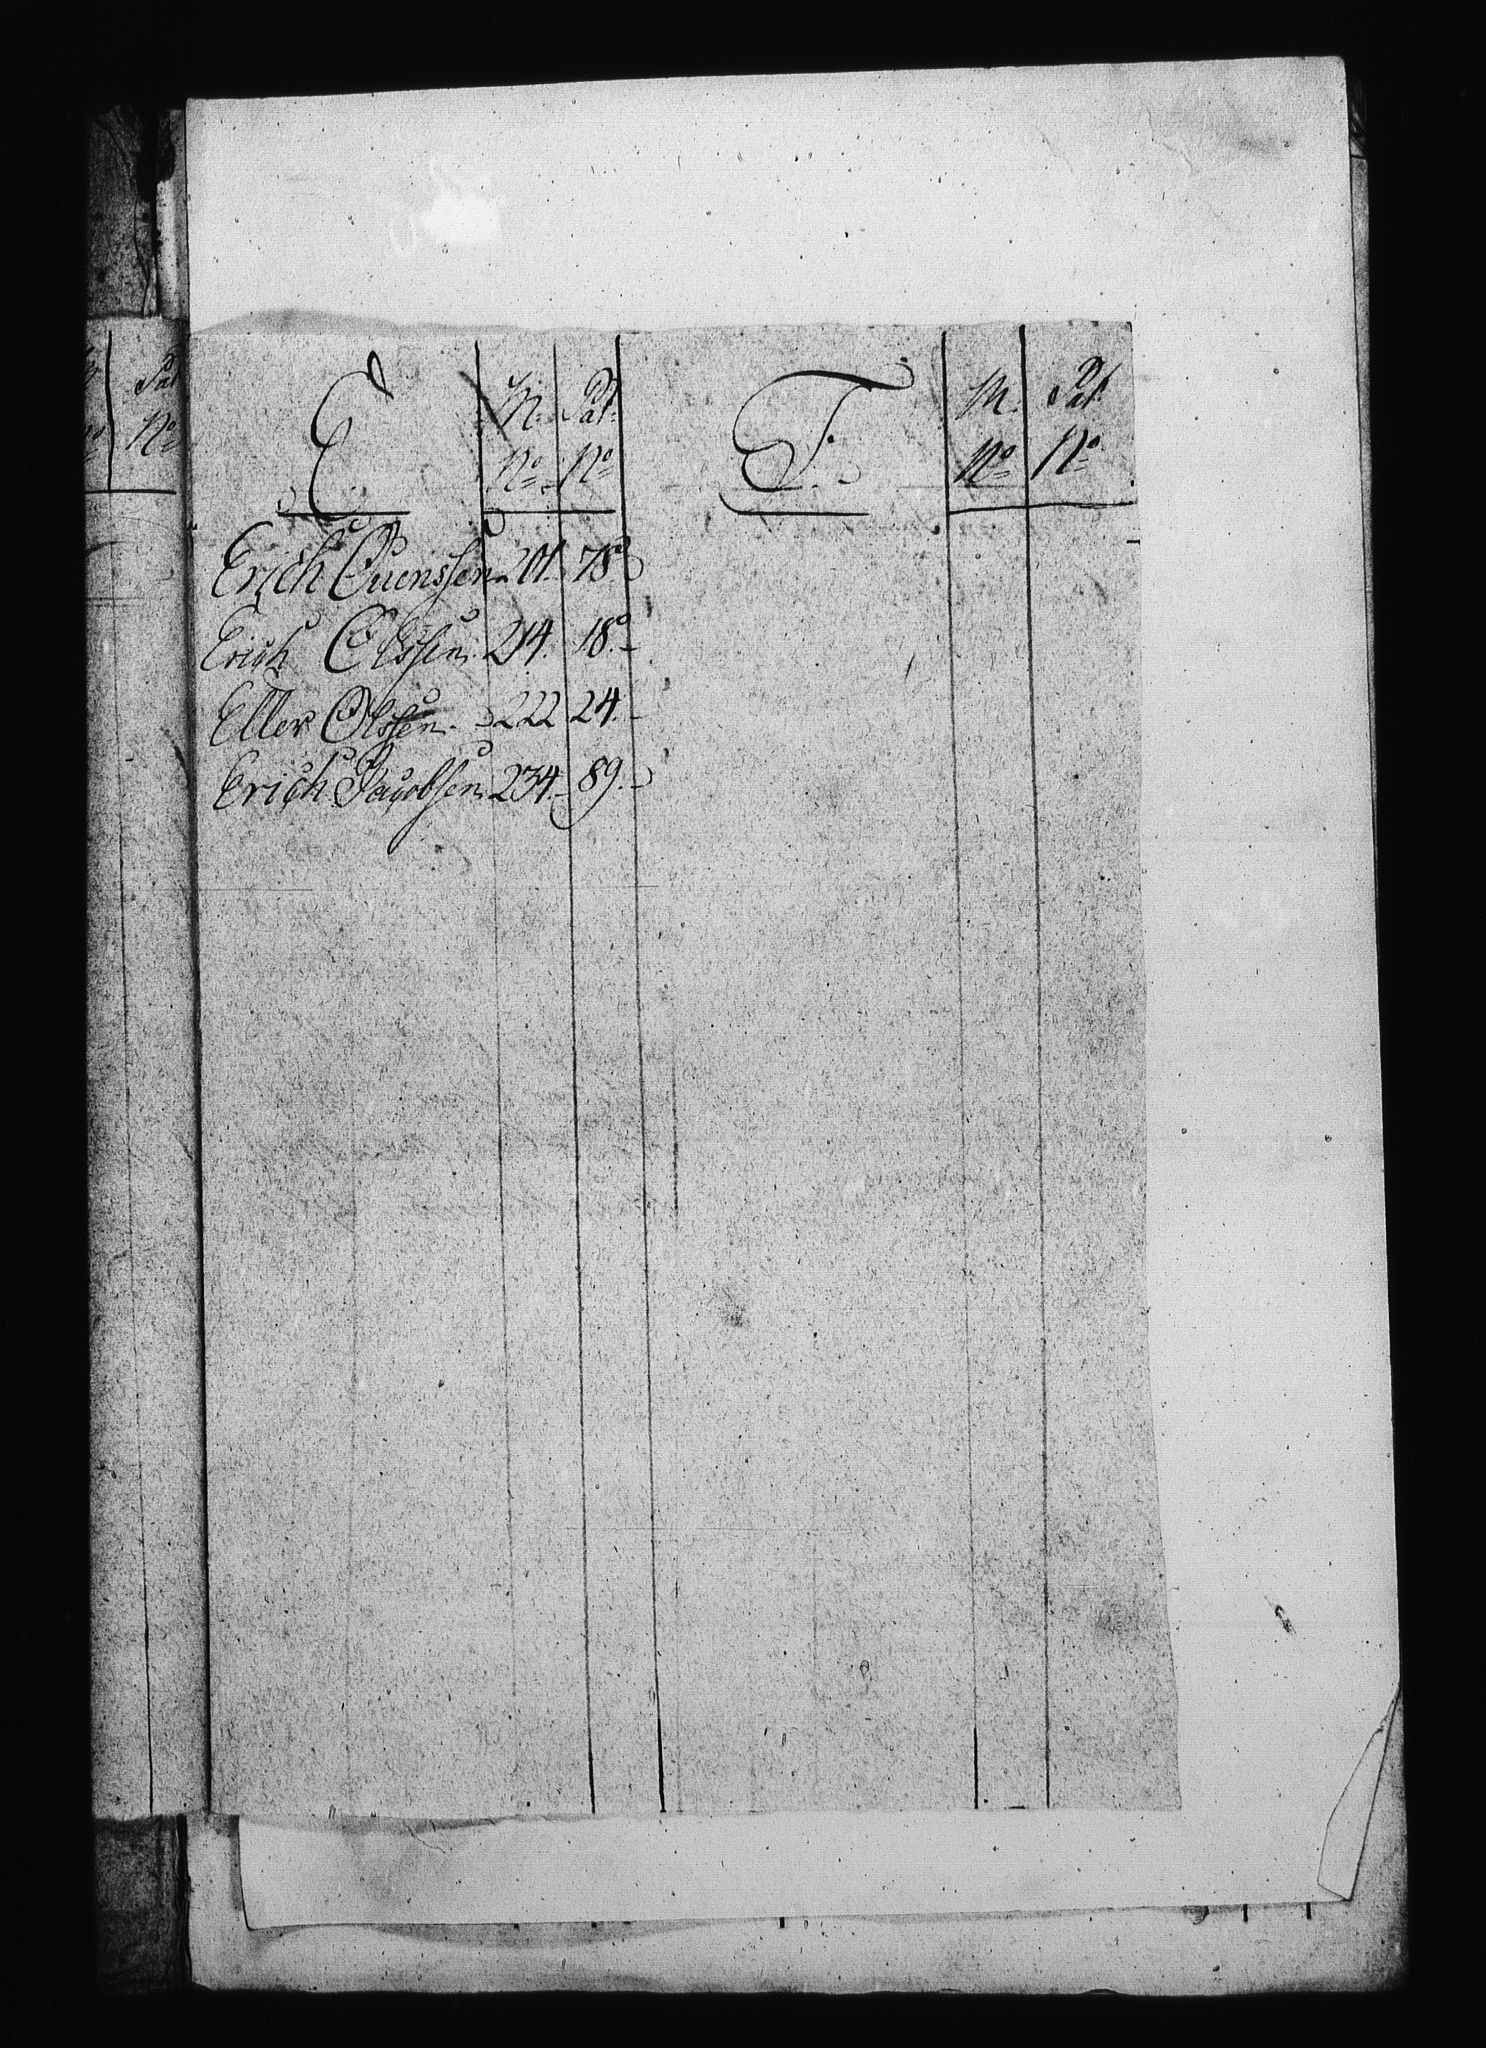 Pat
No
No
E
M: Pat:
No No
Erich Evenssen 201. 78.
Erich Olssen 214. 18.
Eller Olssen. 222 24.
Erich Jacobsen 234. 89.
F.
M. Pat:
No No